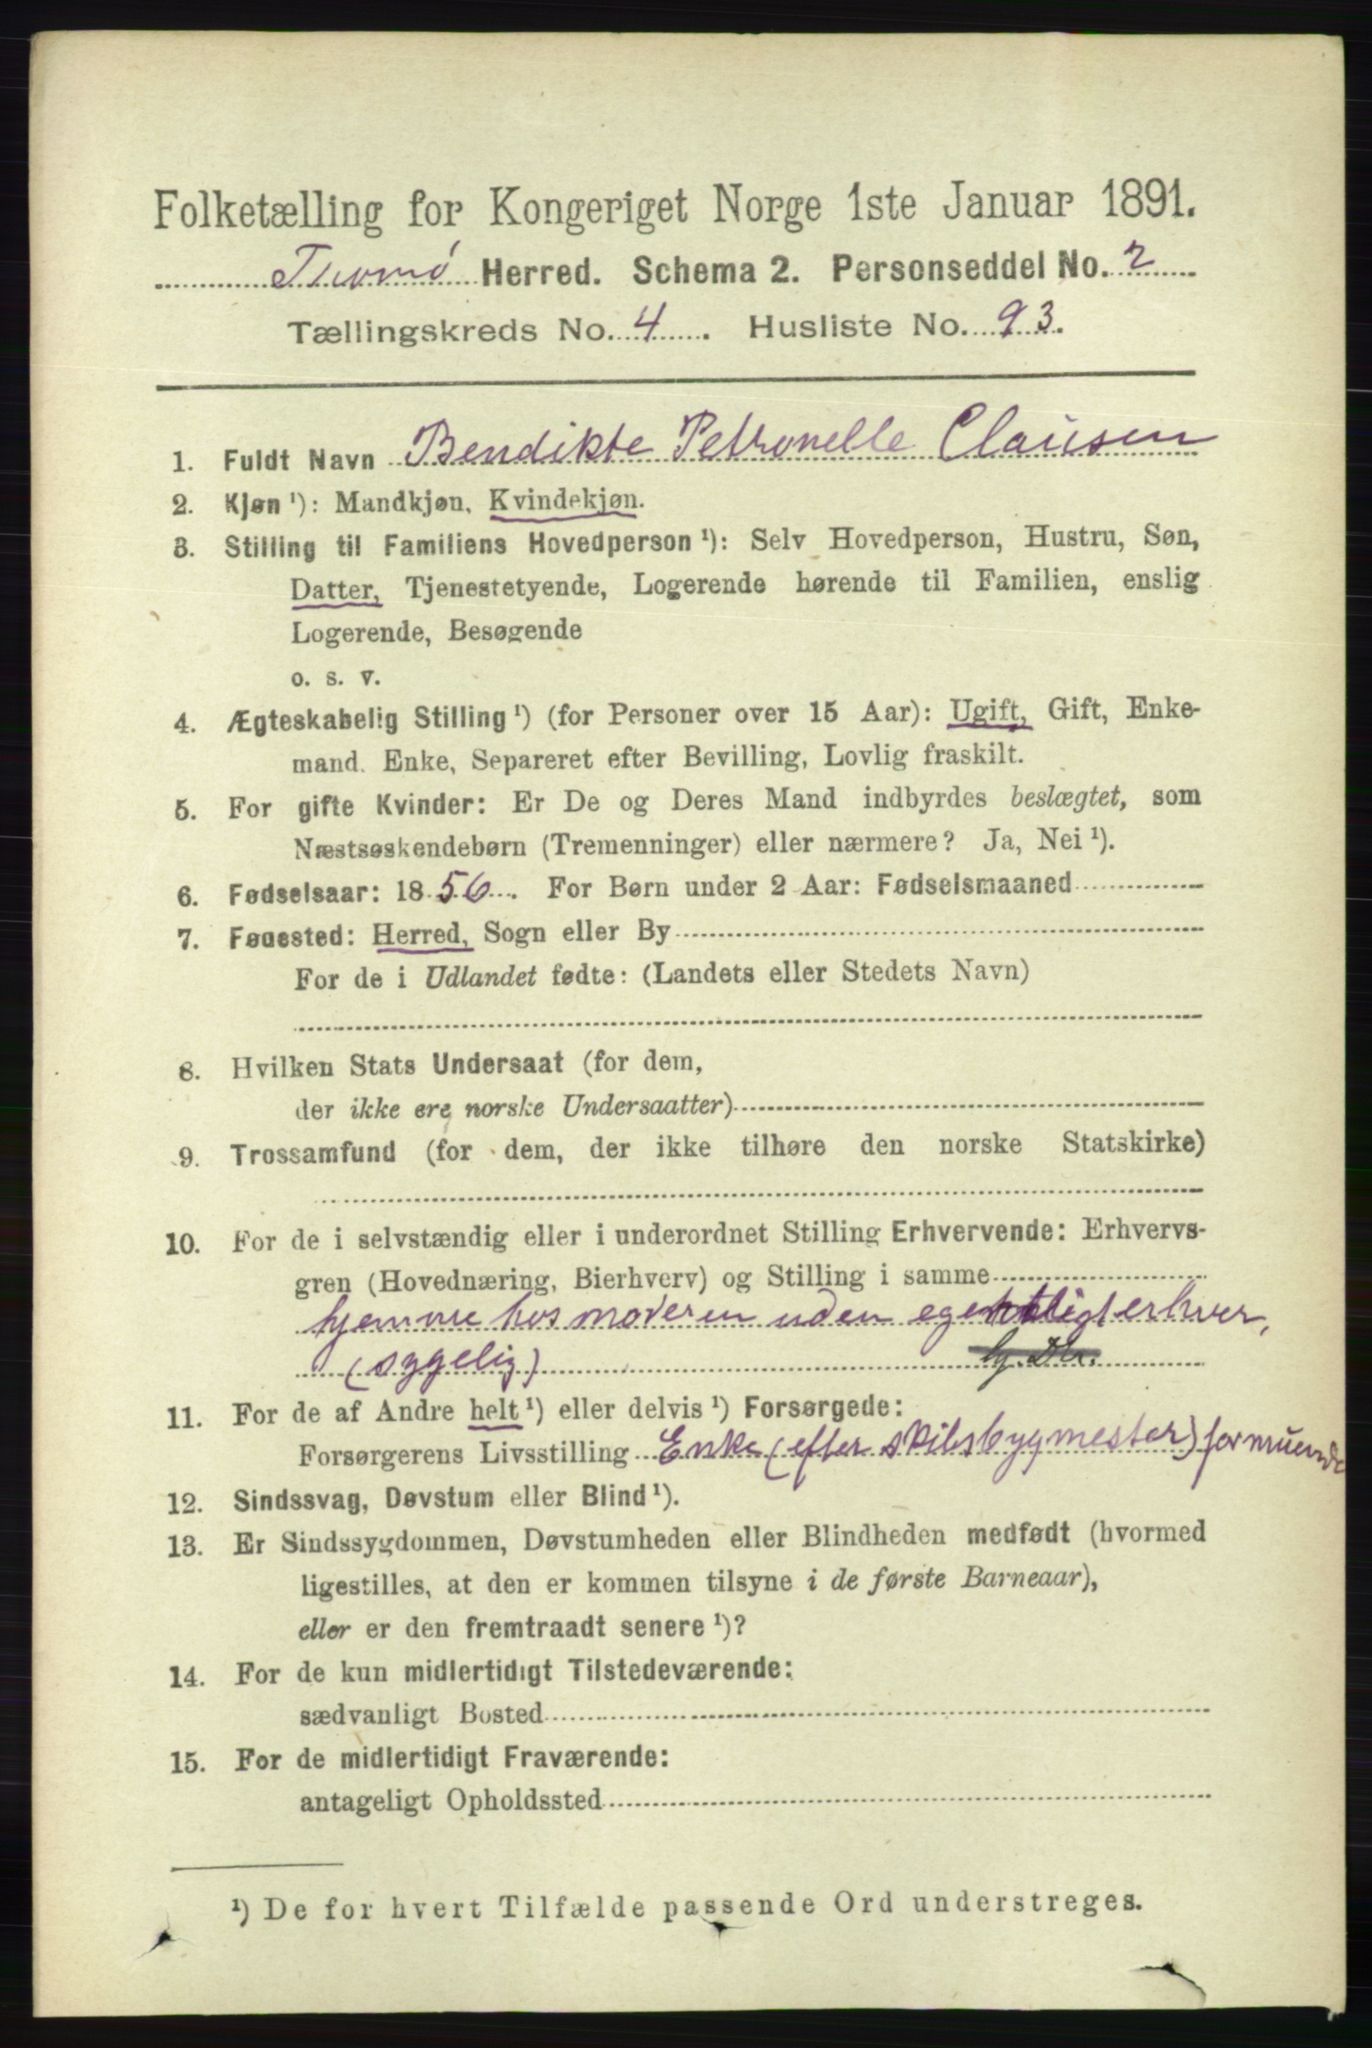 Folketælling for Kongeriget Norge 1ste Januar 1891.
Thromø Herred. Schema 2. Personseddel No. 2
Tællingskreds No. 4. Husliste No. 93.
1. Fuldt Navn Bendikte Petronelle Clausen
2. Kjøn ¹): Mandkjøn, Kvindekjøn.
3. Stilling til Familiens Hovedperson ¹): Selv Hovedperson, Hustru, Søn,
Datter, Tjenestetyende, Logerende hørende til Familien, enslig
Logerende, Besøgende
o. s. v.
4. Ægteskabelig Stilling ¹) (for Personer over 15 Aar): Ugift, Gift, Enke-
mand, Enke, Separeret efter Bevilling, Lovlig fraskilt.
5. For gifte Kvinder: Er De og Deres Mand indbyrdes beslægtet, som
Næstsøskendebørn (Tremenninger) eller nærmere? Ja, Nei ¹).
6. Fødselsaar: 1856. For Børn under 2 Aar: Fødselsmaaned
7. Fødested: Herred, Sogn eller By
For de i Udlandet fødte: (Landets eller Stedets Navn)
8. Hvilken Stats Undersaat (for dem,
der ikke ere norske Undersaatter)
9. Trossamfund (for dem, der ikke tilhøre den norske Statskirke)
10. For de i selvstændig eller i underordnet Stilling Erhvervende: Erhvervs-
gren (Hovednæring, Bierhverv) og Stilling i samme
hjemme hos moderen uden egentligt erhver,
(sygelig)
11. For de af Andre helt ¹) eller delvis ¹) Forsørgede:
Forsørgerens Livsstilling Enke (efter skibsbygmester) formuende
12. Sindssvag, Døvstum eller Blind ¹).
13. Er Sindssygdommen, Døvstumheden eller Blindheden medfødt (hvormed
ligestilles, at den er kommen tilsyne i de første Barneaar),
eller er den fremtraadt senere ¹)?
14. For de kun midlertidigt Tilstedeværende:
sædvanligt Bosted
15. For de midlertidigt Fraværende:
antageligt Opholdssted
¹) De for hvert Tilfælde passende Ord understreges.